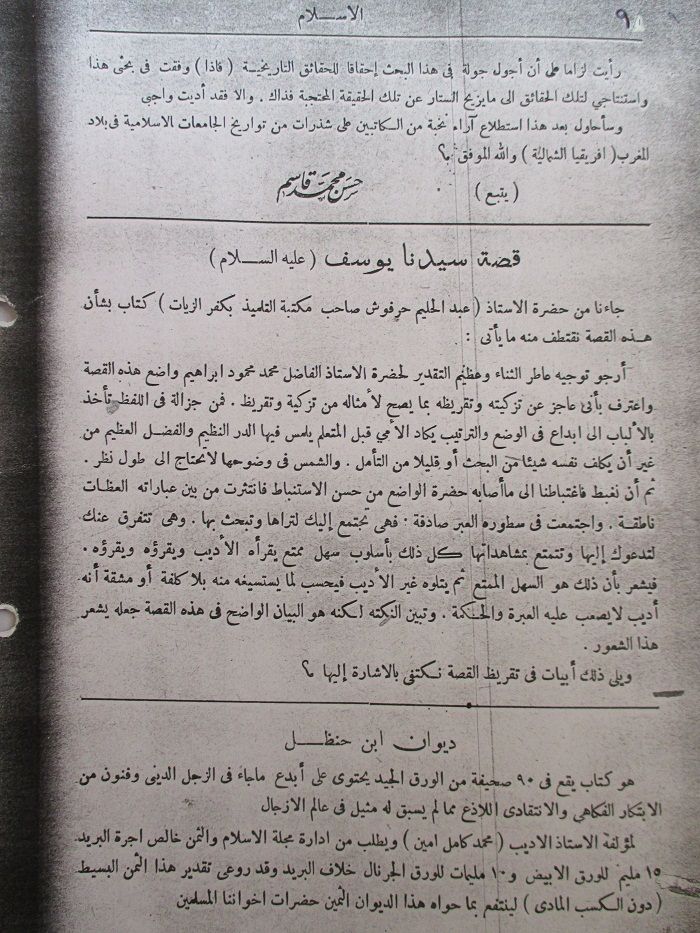 ٩
الاســـلام
رأيت لزاما على أن أجول جولة فى هذا البحث إحقاقا للحقائق التاريخية ( فاذا ) وفقت فى بحثى هذا
واستنتاجي لتلك الحقائق الى مايزيح الستار عن تلك الحقيقة المحتجبة فذاك . والا فقد أديت واجبي
وسأحاول بعد هذا استطلاع آراء نخبة من الكاتبين على شذرات من تواريخ الجامعات الاسلامية فى بلاد
المغرب ( افريقيا الشمالية ) والله الموفق
( يتبع )
حسن محمد قاسم
قصة سيدنا يوسف ( عليه الســـلام )
جاءنا من حضرة الاستاذ ( عبد الحليم حرفوش صاحب مكتبة التلميذ بكفر الزيات ) كتاب بشأن
هـذه القصة نقتطف منه ما يأتى :
أرجو توجيه عاطر الثناء وعظيم التقدير لحضرة الاستاذ الفاضل محمد محمود ابراهيم واضع هذه القصة
واعترف بأنى عاجز عن تزكيته وتقريظه بما يصح لأمثاله من تزكية وتقريظ . فمن جزالة فى اللفظ تأخذ
بالألباب الى ابداع فى الوضع والترتيب يكاد الأمي قبل المتعلم يلمس فيها الدر النظيم والفضـل العظيم من
غير أن يكلف نفسه شيئا من البحث أو قليلا من التأمل . والشمس فى وضوحها لاتحتاج الى طول نظر .
ثم أن نغبط فاغتباطنا الى ماأصابه حضرة الواضع من حسن الاستنباط فانتثرت من بين عباراته العظات
ناطقـة . واجتمعت فى سطوره العبر صادقة : فهى تجتمع إليك لتراها وتبحث بها . وهى تتفرق عنك
لتدعوك إليها وتتمتع بمشاهداتها كـل ذلك بأسلوب سهل ممتع يقرأه الأديب ويقرؤه ويقرؤه .
فيشعر بأن ذلك هو السهل الممتع ثم يتلوه غير الأديب فيحسب لما يستسيغه منه بلا كلفة أو مشقة أنه
أديب لايصعب عليه العبرة والحـكمة . وتبين النكته لـكنه هو البيان الواضح فى هذه القصة جعله يشعر
هذا الشعور .
ويلى ذلك أبيات فى تقريظ القصة نـكتفى بالاشارة إليها
ديوان ابن حنظـــل
هو كتاب يقع فى ٩٠ صحيفة من الورق الجيد يحتوى على أبدع ماجاء فى الزجل الدينى وفنون من
الابتكار الفكاهى والانتقادى اللاذع مما لم يسبق له مثيل فى عالم الازجال
لمؤلفه الاستاذ الاديب ( محمد كامل امين ) ويطلب من ادارة مجلة الاسلام والثمن خالص اجرة البريد
١٥ مليم للورق الابيض و ١٠ مليمات للورق الجرنال خلاف البريد وقد روعى تقدير هذا الثمن البسيط
( دون الكسب المادى ) لينتفع بما حواه هذا الديوان الثمين حضرات اخواننا المسلمين